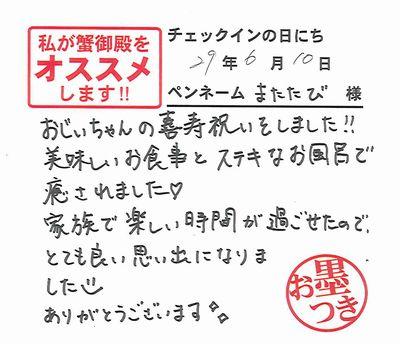 私が蟹御殿を
オススメ
します!!
チェックインの日にち
29年6月10日
ペンネーム またたび 様
おじいちゃんの喜寿祝いをしました!!
美味しいお食事とステキなお風呂で
癒されました♡
家族で楽しい時間が過ごせたので、
とても良い思い出になりま
した
ありがとうございます
お墨つき